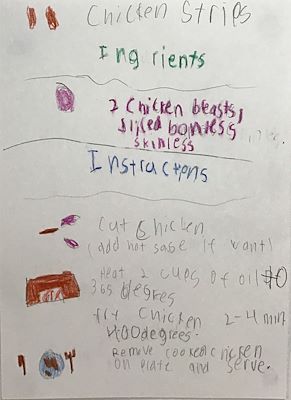 Chicken Strips
Ingrients
2 Chicken beasts,
sliced bonless
skinless
Instractons
Cut Chicken
(add hot sase if want)
Heat 2 cups of oil to
365 degres
fry Chicken 2-4 min
400degrees.
Remove cooked chicken
on plate and serve.